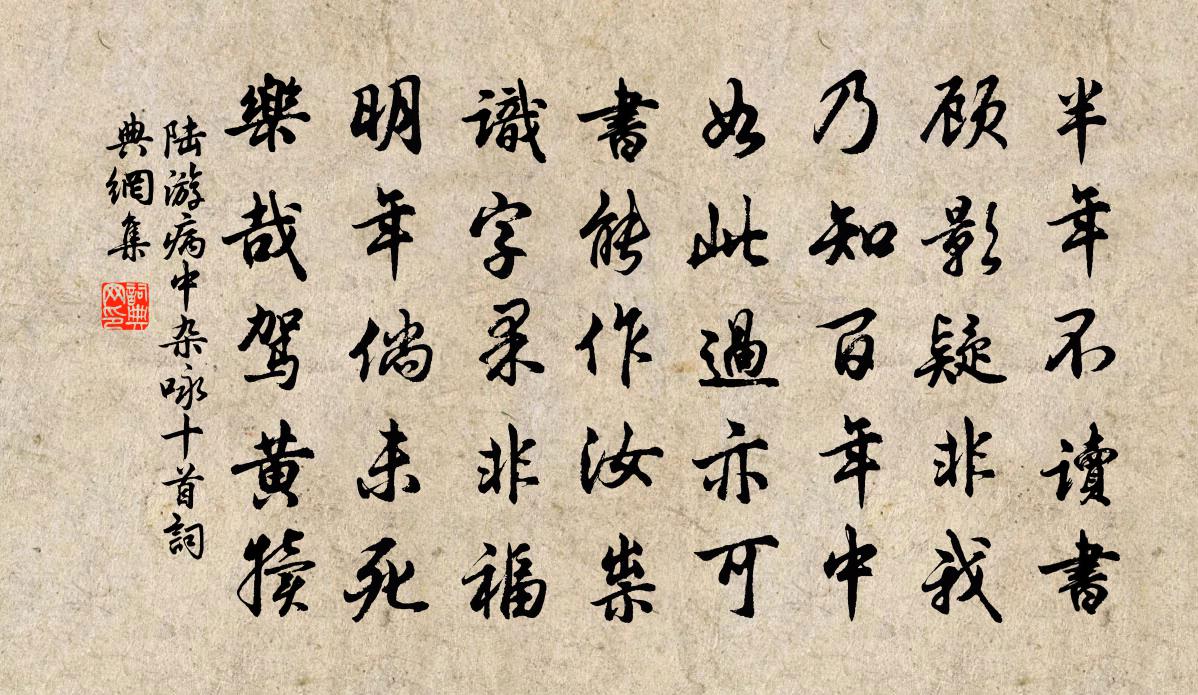 半年不讀書
顾影疑非我
乃知百年中
如此過亦可
書能作汝祟
識字果非福
明年倘未死
樂哉駕黄犢
陆游病中杂咏十首詞
典網集
詞典
网印